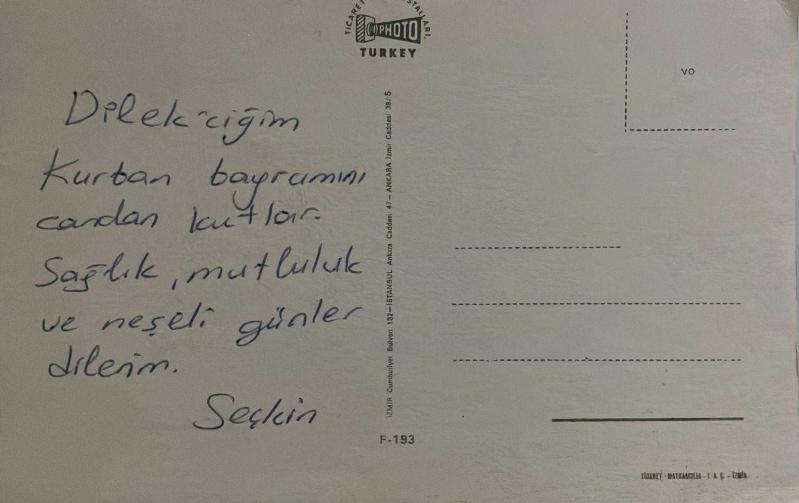 Dilek'ciğim
Kurban bayramını
candan kutlar.
Sağlık, mutluluk
ve neşeli günler
dilerim.
Seçkin
TİCARET
PHOTO
TURKEY
İZMİR Cumhuriyet Bulvarı 132 — İSTANBUL Ankara Caddesi 47 — ANKARA İzmir Caddesi 38/5
F-193
VO
TİCARET - MATBAACILIK - T. A. Ş. - İZMİR